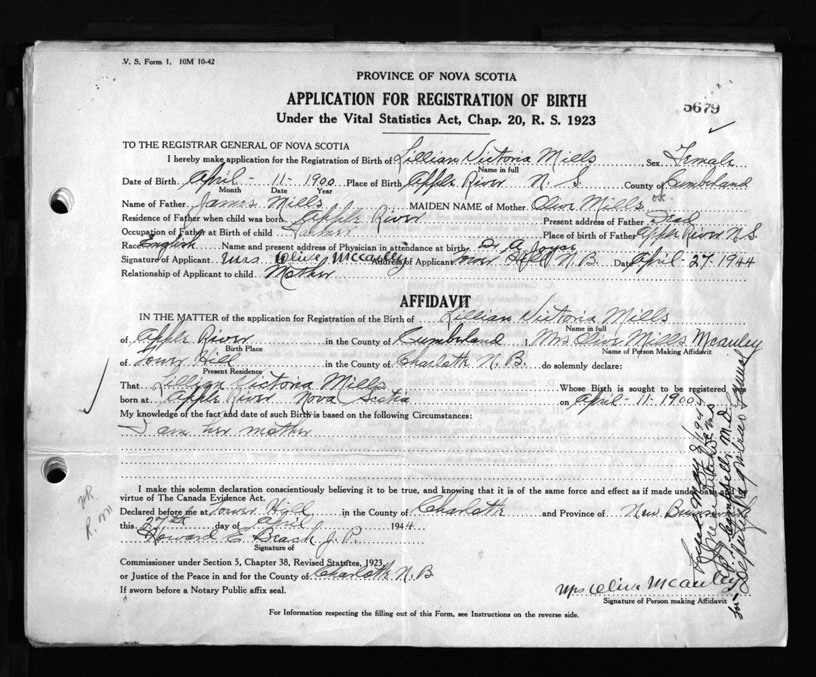 V. S. Form 1. 10M 10-42
PROVINCE OF NOVA SCOTIA
APPLICATION FOR REGISTRATION OF BIRTH
5679
Under the Vital Statistics Act, Chap. 20, R. S. 1923
TO THE REGISTRAR GENERAL OF NOVA SCOTIA
I hereby make application for the Registration of Birth of Lillian Victoria Mills Sex Female
Name in full
Date of Birth April - 11 - 1900 Place of Birth Apple River N. S. County of Cumberland
Month Date Year
Name of Father James Mills MAIDEN NAME of Mother Olive Mills ok
Residence of Father when child was born Apple River Present address of Father Dead
Occupation of Father at Birth of child Place of birth of Father Apple River N.S.
Race English Name and present address of Physician in attendance at birth Dr. A
Signature of Applicant Mrs. Olive Mccauley Address of Applicant Tower Hill N. B. Date April - 27 - 1944
Relationship of Applicant to child Mother
AFFIDAVIT
IN THE MATTER of the application for Registration of the Birth of Lillian Victoria Mills
Name in full
of Apple River in the County of Cumberland I, Mrs Olive Mills Mcauley
Birth Place Name of Person Making Affidavit
of Tower Hill in the County of Charlotte N. B. do solemnly declare:
Present Residence
That Lillian Victoria Mills Whose Birth is sought to be registered
born at Apple River Nova Scotia on April - 11 - 1900
My knowledge of the fact and date of such Birth is based on the following Circumstances:
I am her mother
I make this solemn declaration conscientiously believing it to be true, and knowing that it is of the same force and effect as if made under oath by
virtue of The Canada Evidence Act.
Declared before me at Tower Hill in the County of Charlotte and Province of New
this 27th day of April 1944
Howard C. Beach J. P.
Signature of
Commissioner under Section 5, Chapter 38, Revised Statutes, 1923,
or Justice of the Peace in and for the County of Charlotte N. B
If sworn before a Notary Public affix seal.
Mrs Olive Mcauley
Signature of Person making Affidavit
For Information respecting the filling out of this Form, see Instructions on the reverse side.
Campbell M.D.
Deputy Registrar General